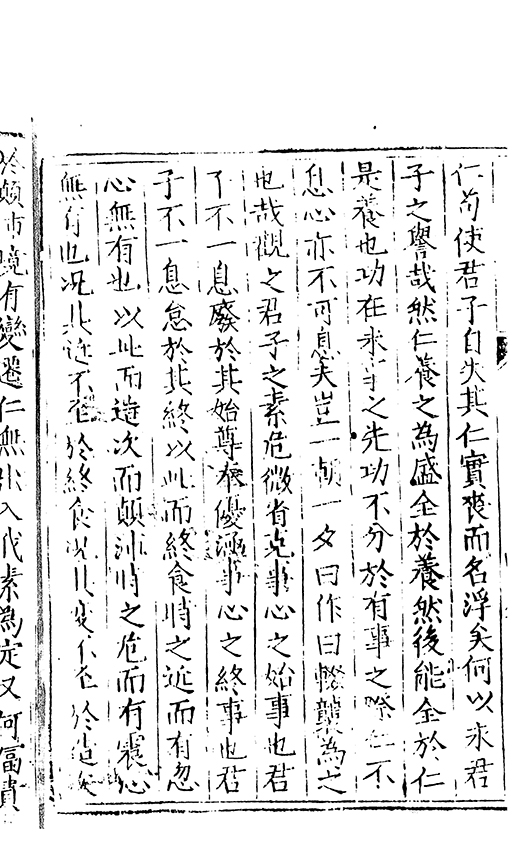 仁苟使君子自失其仁實喪而名浮矣何以求君
子之譽哉然仁養之為盛全於養然後能全於仁
是養也功在未事之先功不分於有事之際心不
息心亦不可息矣豈一朝一夕曰作曰輟襲為之
也哉觀之君子之素危微省克事心之始事也君
子不一息廢於其始尊養優涵事心之終事也君
子不一息怠於其終以此而終食時之近而有忽
心無有也以此而造次而顛沛時之危而有震心
無有也况其近不在於終食况其變不在於造次
於顛沛境有變遷仁無出入我素為定又何富貴